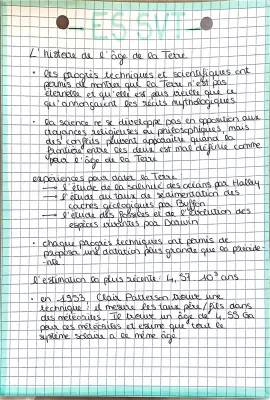 ES SVT
L'histoire de l'âge de la Terre
• les progrès techniques et scientifiques ont
permis de montrer que la Terre n'est pas
éternelle et qu'elle est plus vieille que ce
qu'annonçaient les récits mythologiques.
• la science ne se développe pas en opposition aux
croyances religieuses ou philosophiques, mais
des conflits peuvent apparaître quand la
frontière entre les deux est mal définie comme
pour l'âge de la Terre
expériences pour dater la Terre
→ l'étude de la salinité des océans par Halley
→ l'étude du taux de sédimentation des
couches géologiques par Buffon
→ l'étude des fossiles et de l'évolution des
espèces vivantes par Darwin
• chaque progrès techniques ont permis de
proposer une datation plus grande que la précéde
-nte
l'estimation la plus récente: 4,57 10⁹ ans
• en 1953, Clair Patterson trouve une
technique: il mesure les taux père/fils dans
des météorites. Il trouve un âge de 4,55 Ga
pour ces météorites et estime que tout le
système solaire a le même âge.